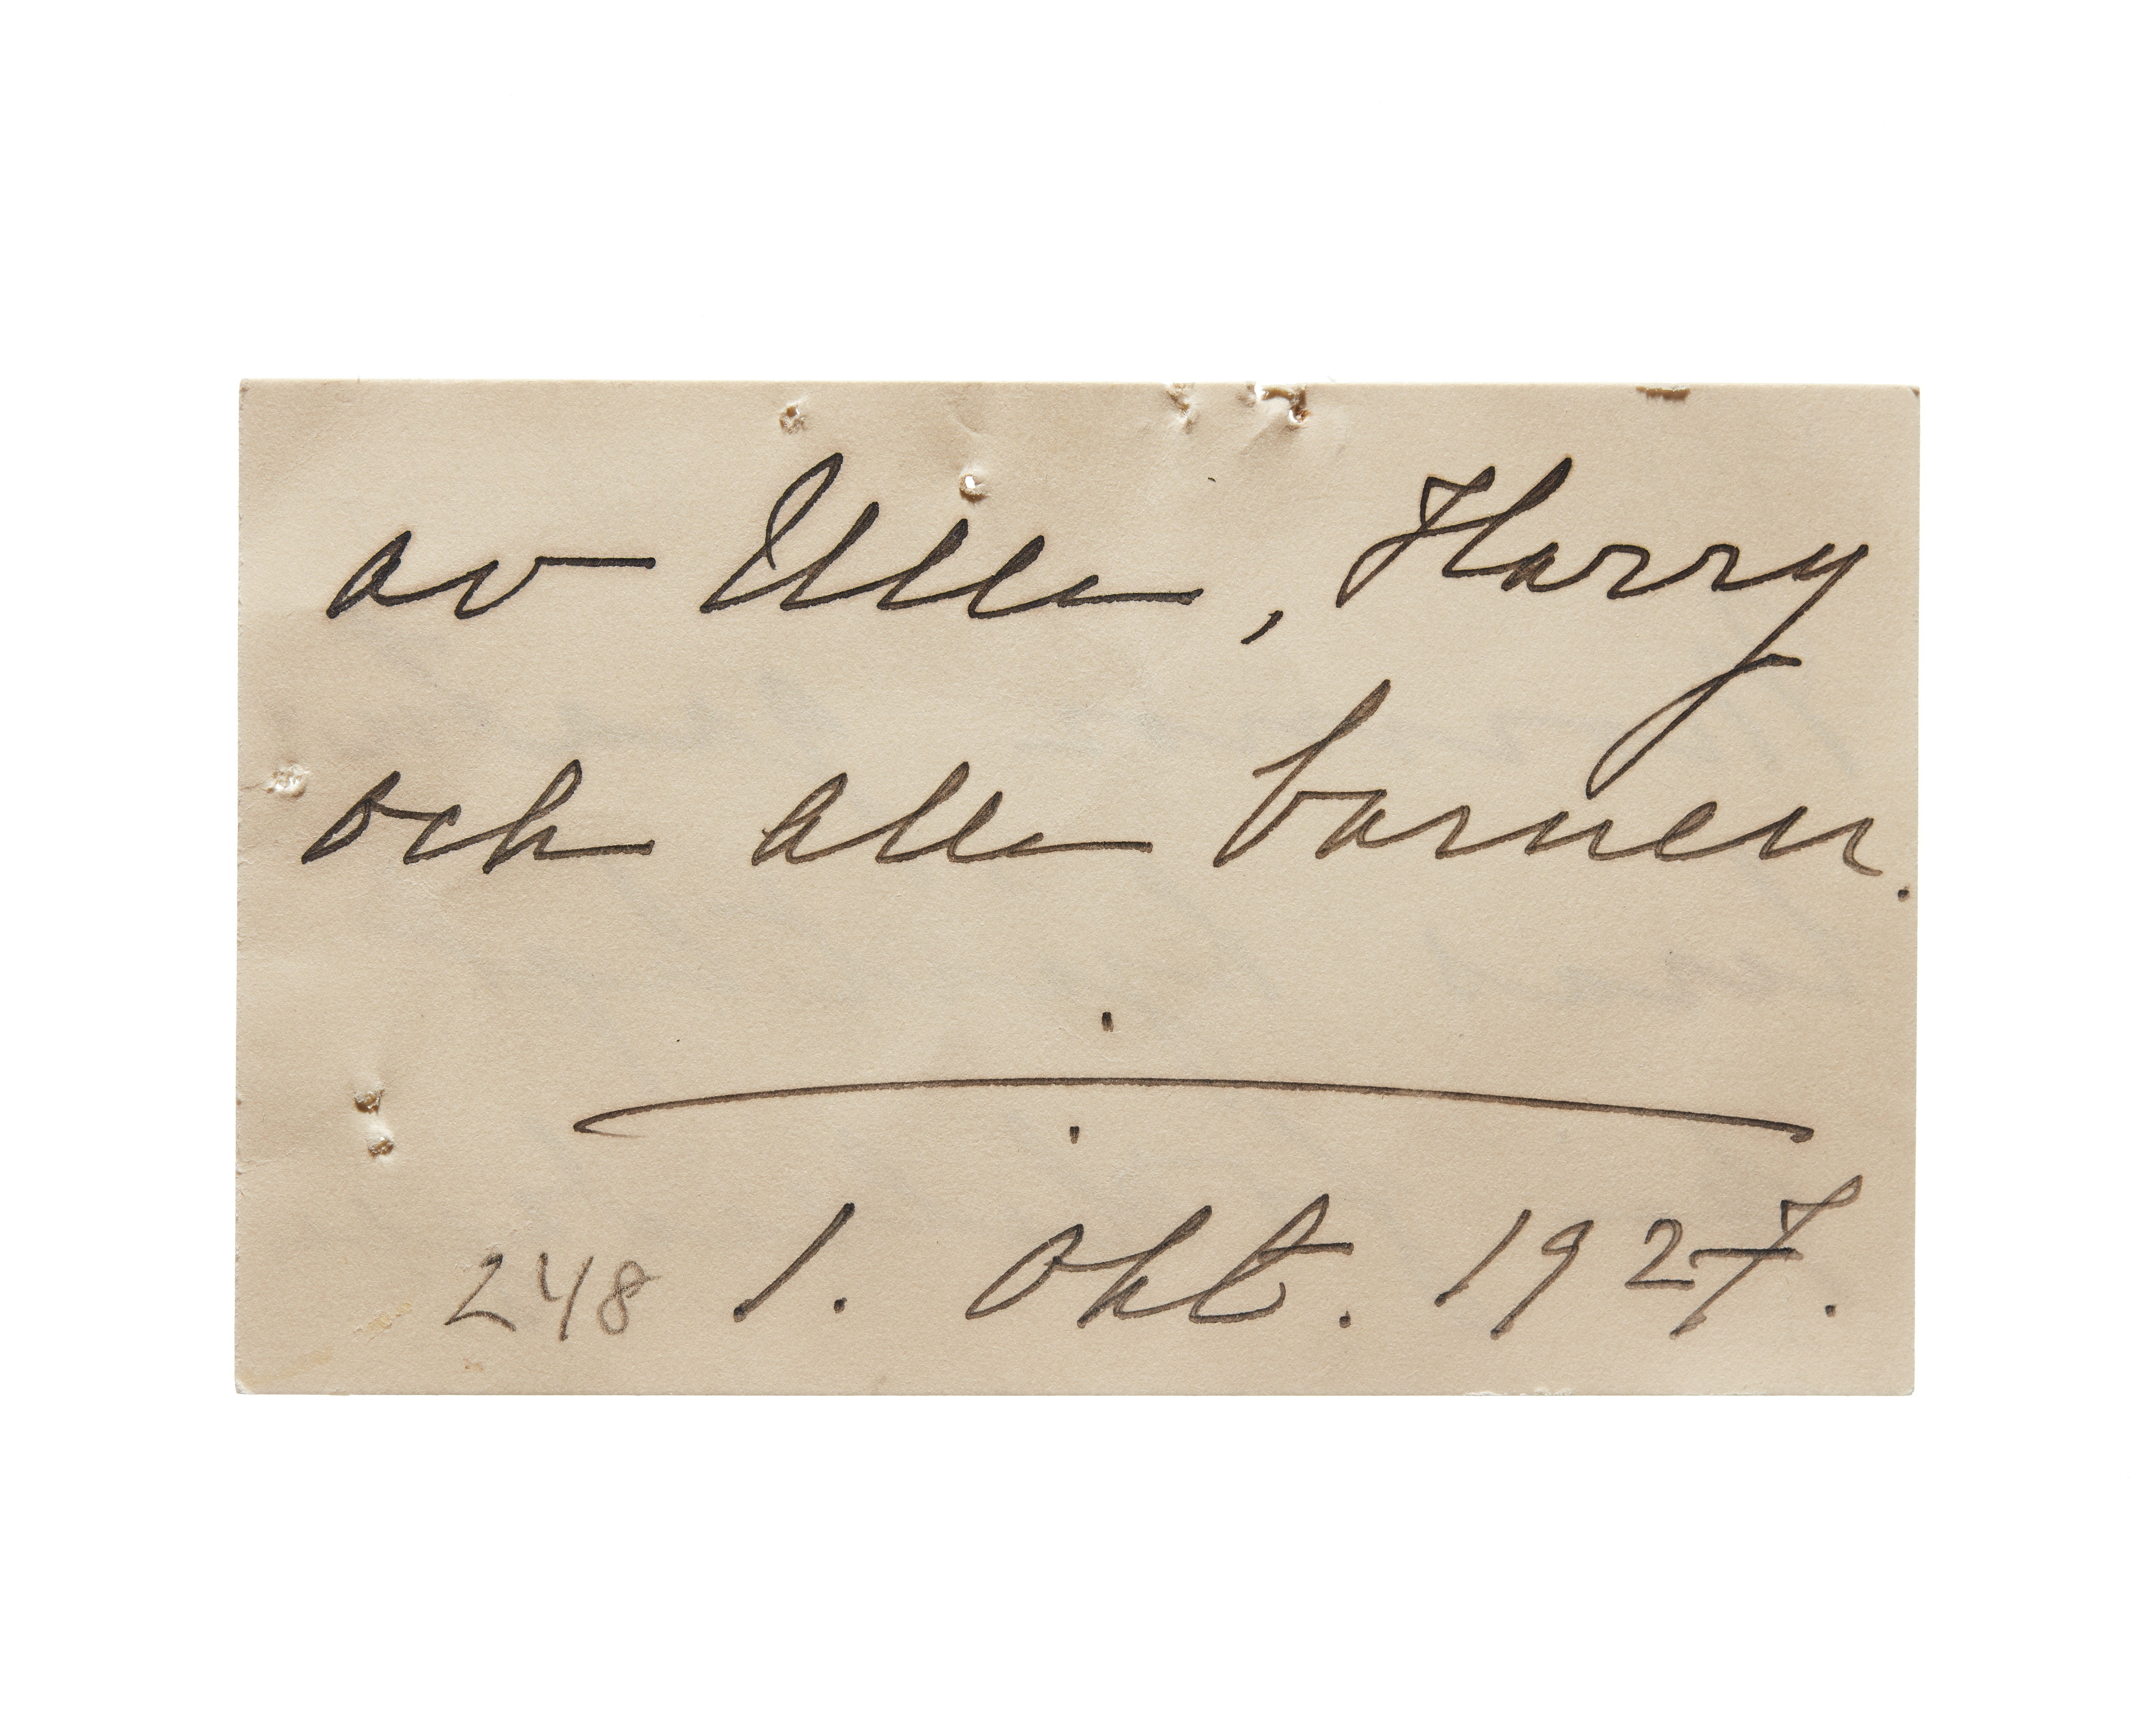 av Ulla, Harry
och alla barnen.
248 1. Okt. 1927.